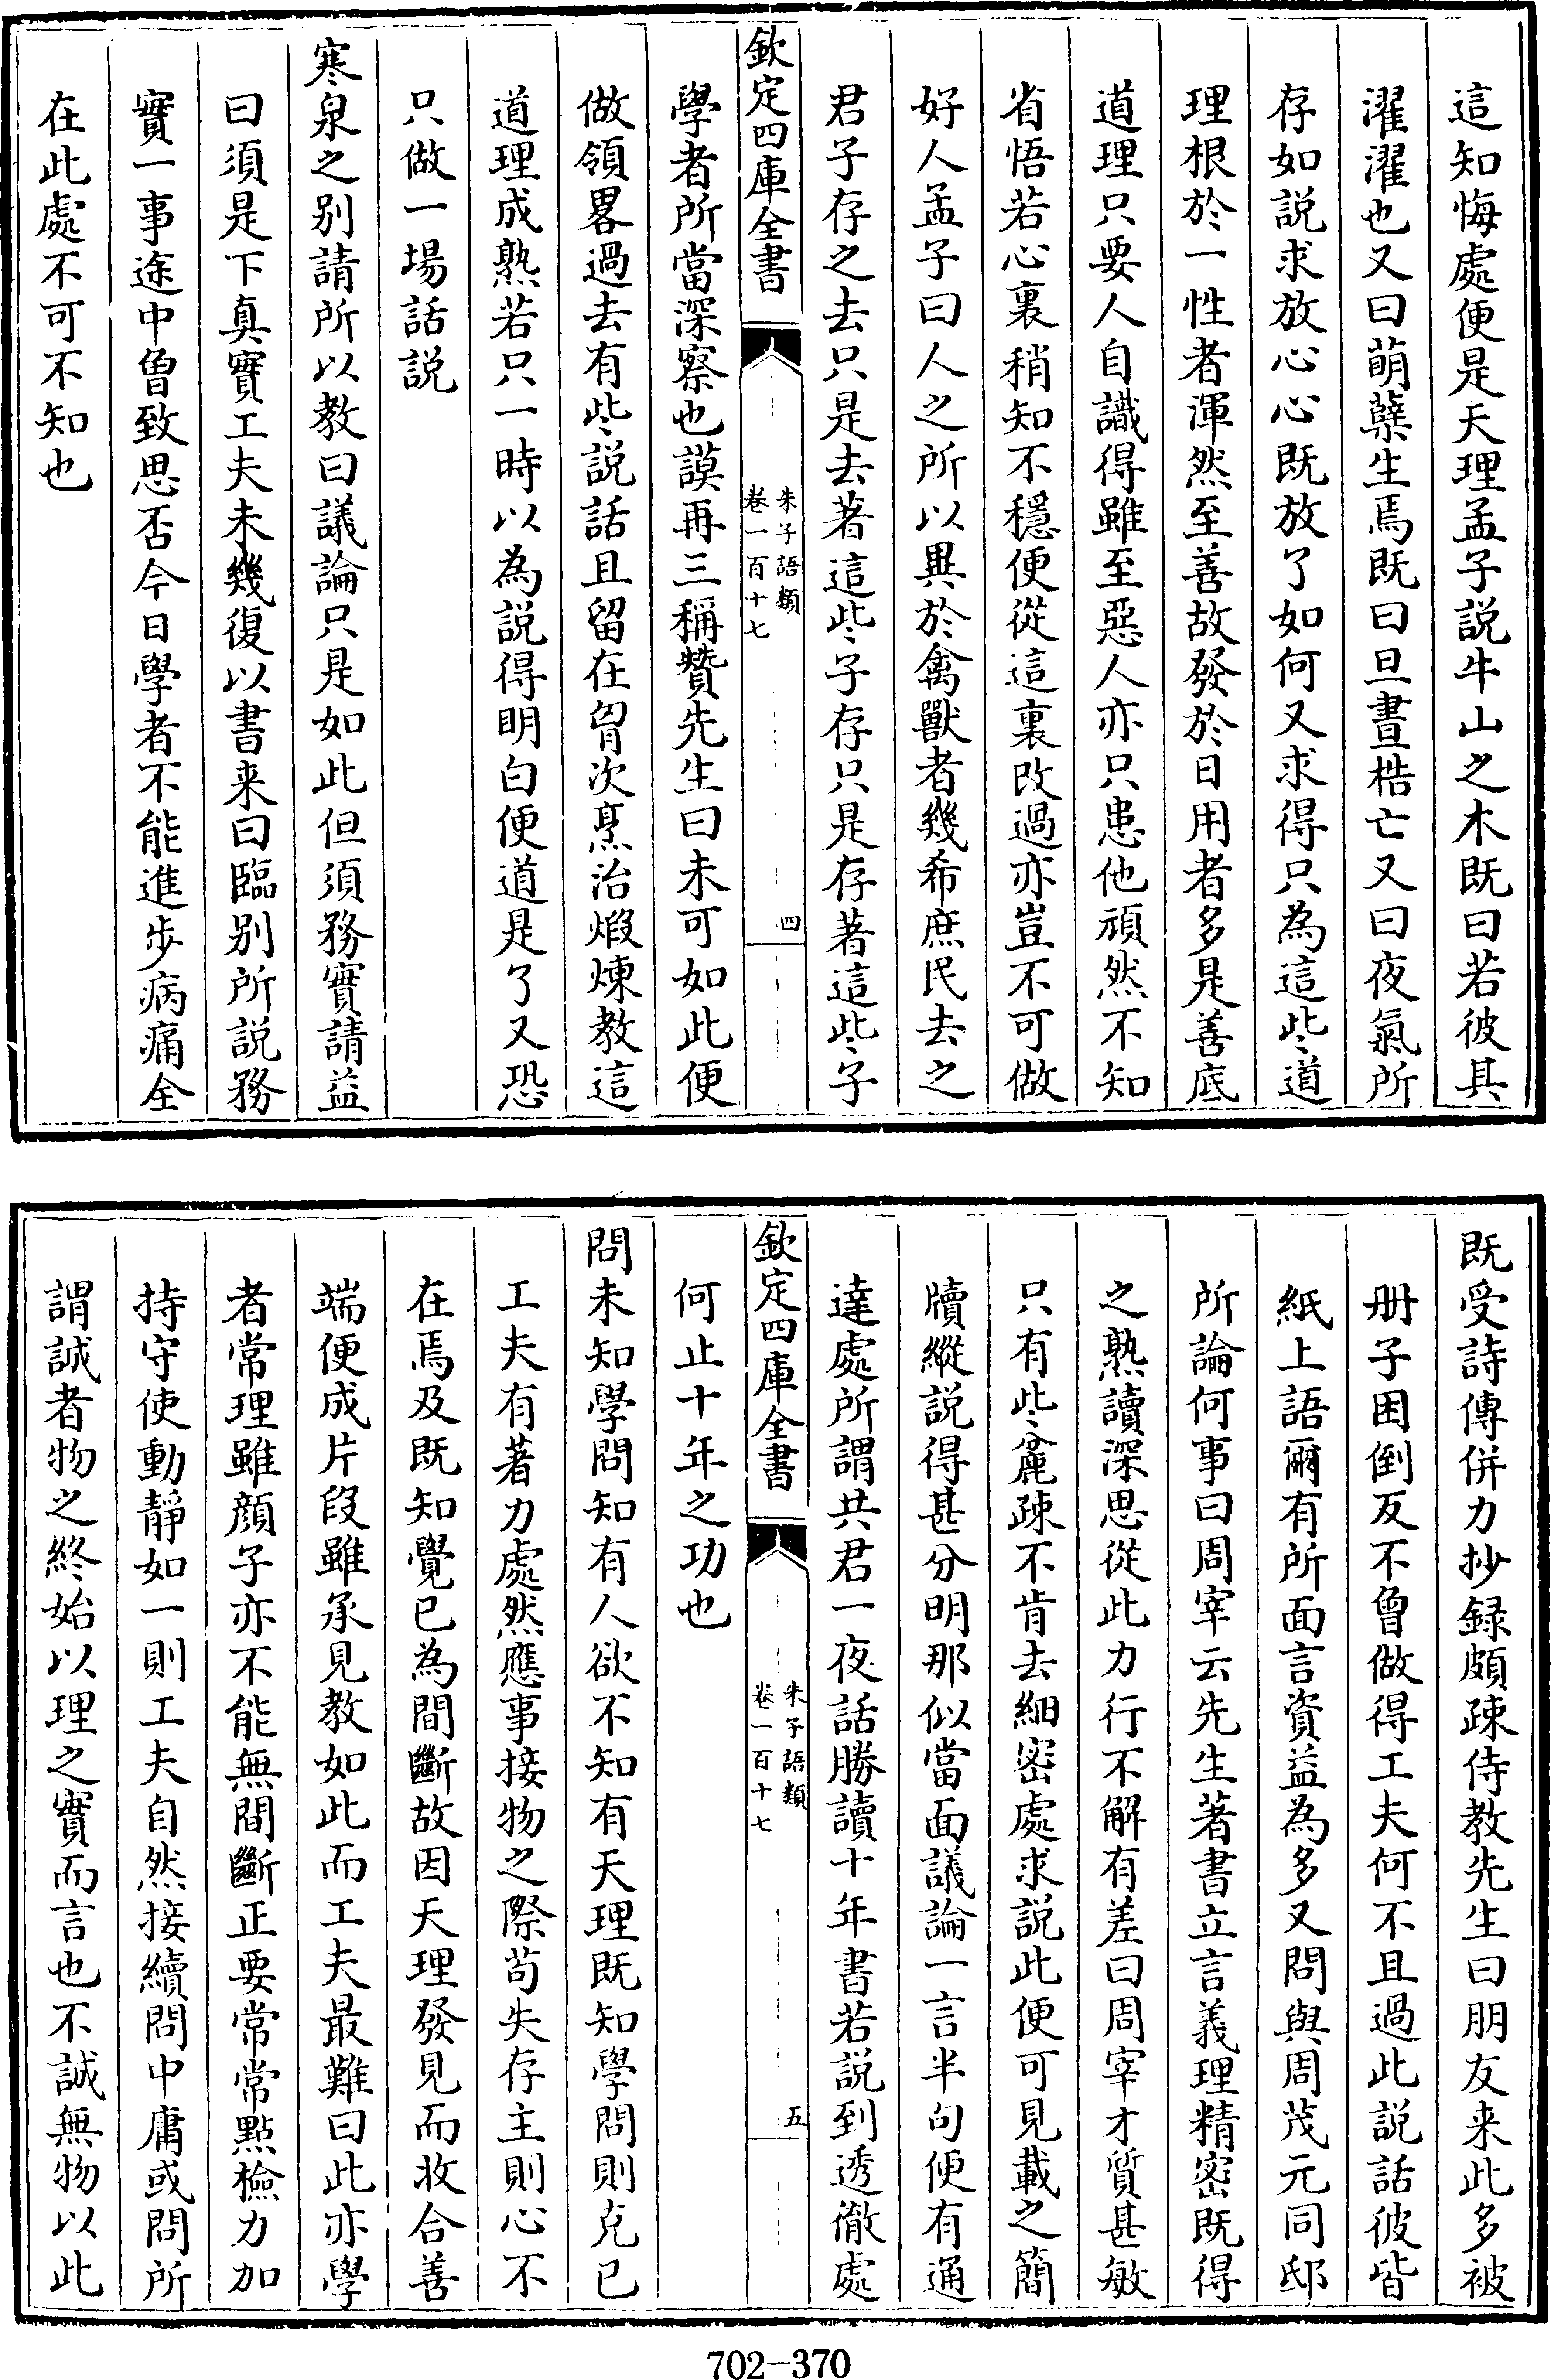 這知悔處便是天理孟子説牛山之木既曰若彼其
濯濯也又曰萌蘖生焉既曰旦晝梏亡又曰夜氣所
存如説求放心心既放了如何又求得只為這些道
理根於一性者渾然至善故發於日用者多是善底
道理只要人自識得雖至惡人亦只患他頑然不知
省悟若心裏稍知不穩便從這裏改過亦豈不可做
好人孟子曰人之所以異於禽獸者幾希庶民去之
君子存之去只是去著這些子存只是存著這些子
欽定四庫全書
朱子語類
卷一百十七
四
學者所當深察也謨再三稱贊先生曰未可如此便
做領畧過去有些説話且留在胷次烹治煅煉教這
道理成熟若只一時以為説得明白便道是了又恐
只做一場話説
寒泉之别請所以教曰議論只是如此但須務實請益
曰須是下真實工夫未幾復以書来曰臨别所説務
實一事途中曾致思否今日學者不能進步病痛全
在此處不可不知也
既受詩傳併力抄録頗疎侍教先生曰朋友来此多被
册子困倒反不曾做得工夫何不且過此説話彼皆
紙上語爾有所面言資益為多又問與周茂元同邸
所論何事曰周宰云先生著書立言義理精密既得
之熟讀深思從此力行不解有差曰周宰才質甚敏
只有些麄疎不肯去細密處求説此便可見載之簡
牘縱説得甚分明那似當面議論一言半句便有通
達處所謂共君一夜話勝讀十年書若説到透徹處
欽定四庫全書
朱子語類
卷一百十七
五
何止十年之功也
問未知學問知有人欲不知有天理既知學問則克已
工夫有著力處然應事接物之際苟失存主則心不
在焉及既知覺已為間斷故因天理發見而收合善
端便成片段雖承見教如此而工夫最難曰此亦學
者常理雖顔子亦不能無間斷正要常常點檢力加
持守使動靜如一則工夫自然接續問中庸或問所
謂誠者物之終始以理之實而言也不誠無物以此
702-370